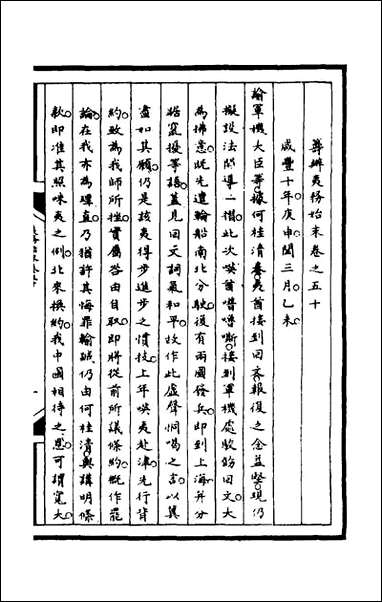 籌辦夷務始末卷之五十
咸豐十年庚申閏三月乙未
諭軍機大臣等據何桂清奏夷酋接到回文報復之念益堅現仍
擬設法開導一摺此次㖫酋嚕嘶接到軍機處駁飭回文大
為拂意既先遣輪船南北分駛後有兩國發兵即到上海並分
踞竄擾等語蓋見回文詞氣和平故作此虛聲恫喝之言以冀
盡如其願仍是該夷得步進步之慣技上年㖫夷赴津先行背
約致為我師所挫實屬咎由自取即將從前所議條約概作罷
論在我亦為理直乃猶許其悔罪輸誠仍由何桂清與講明條
款即准其照咪夷之例北來換約我中國相待之恩可謂寬大